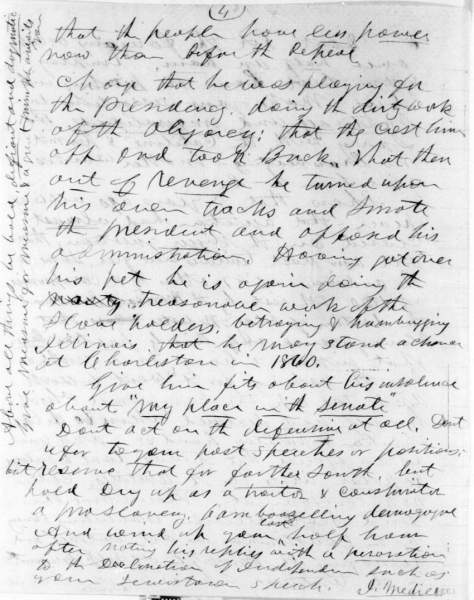 (4)
that the people have less power
now than before the Repeal
Charge that he was playing for
the Presidency, doing the dirty work
of the Oligarchy; that they cast him
off and took Buck. That then
out of revenge he turned upon
his own tracks and smote
the president and opposed his
administration. Having got over
his pet he is again doing the
treasonable work of the
Slave holders, betraying & humbugging
Illinois, that he may stand a chance
at Charleston in 1860.
Give him fits about his insolence
about "my place in the Senate"
Dont act on the defensive at all. Dont
refer to your past speeches or positions;
but reserve that for farther South, but
hold Dug up as a traitor & conspirator
a proslavery, bamboozelling demogogue
And wind up your last half hour
after noting his replies with a peroration
to the Declaration of Independence such as
your Lewistown speech.
J. Medill
Above all things, be bold, defiant and dogmatic
give measure for measure & again
you